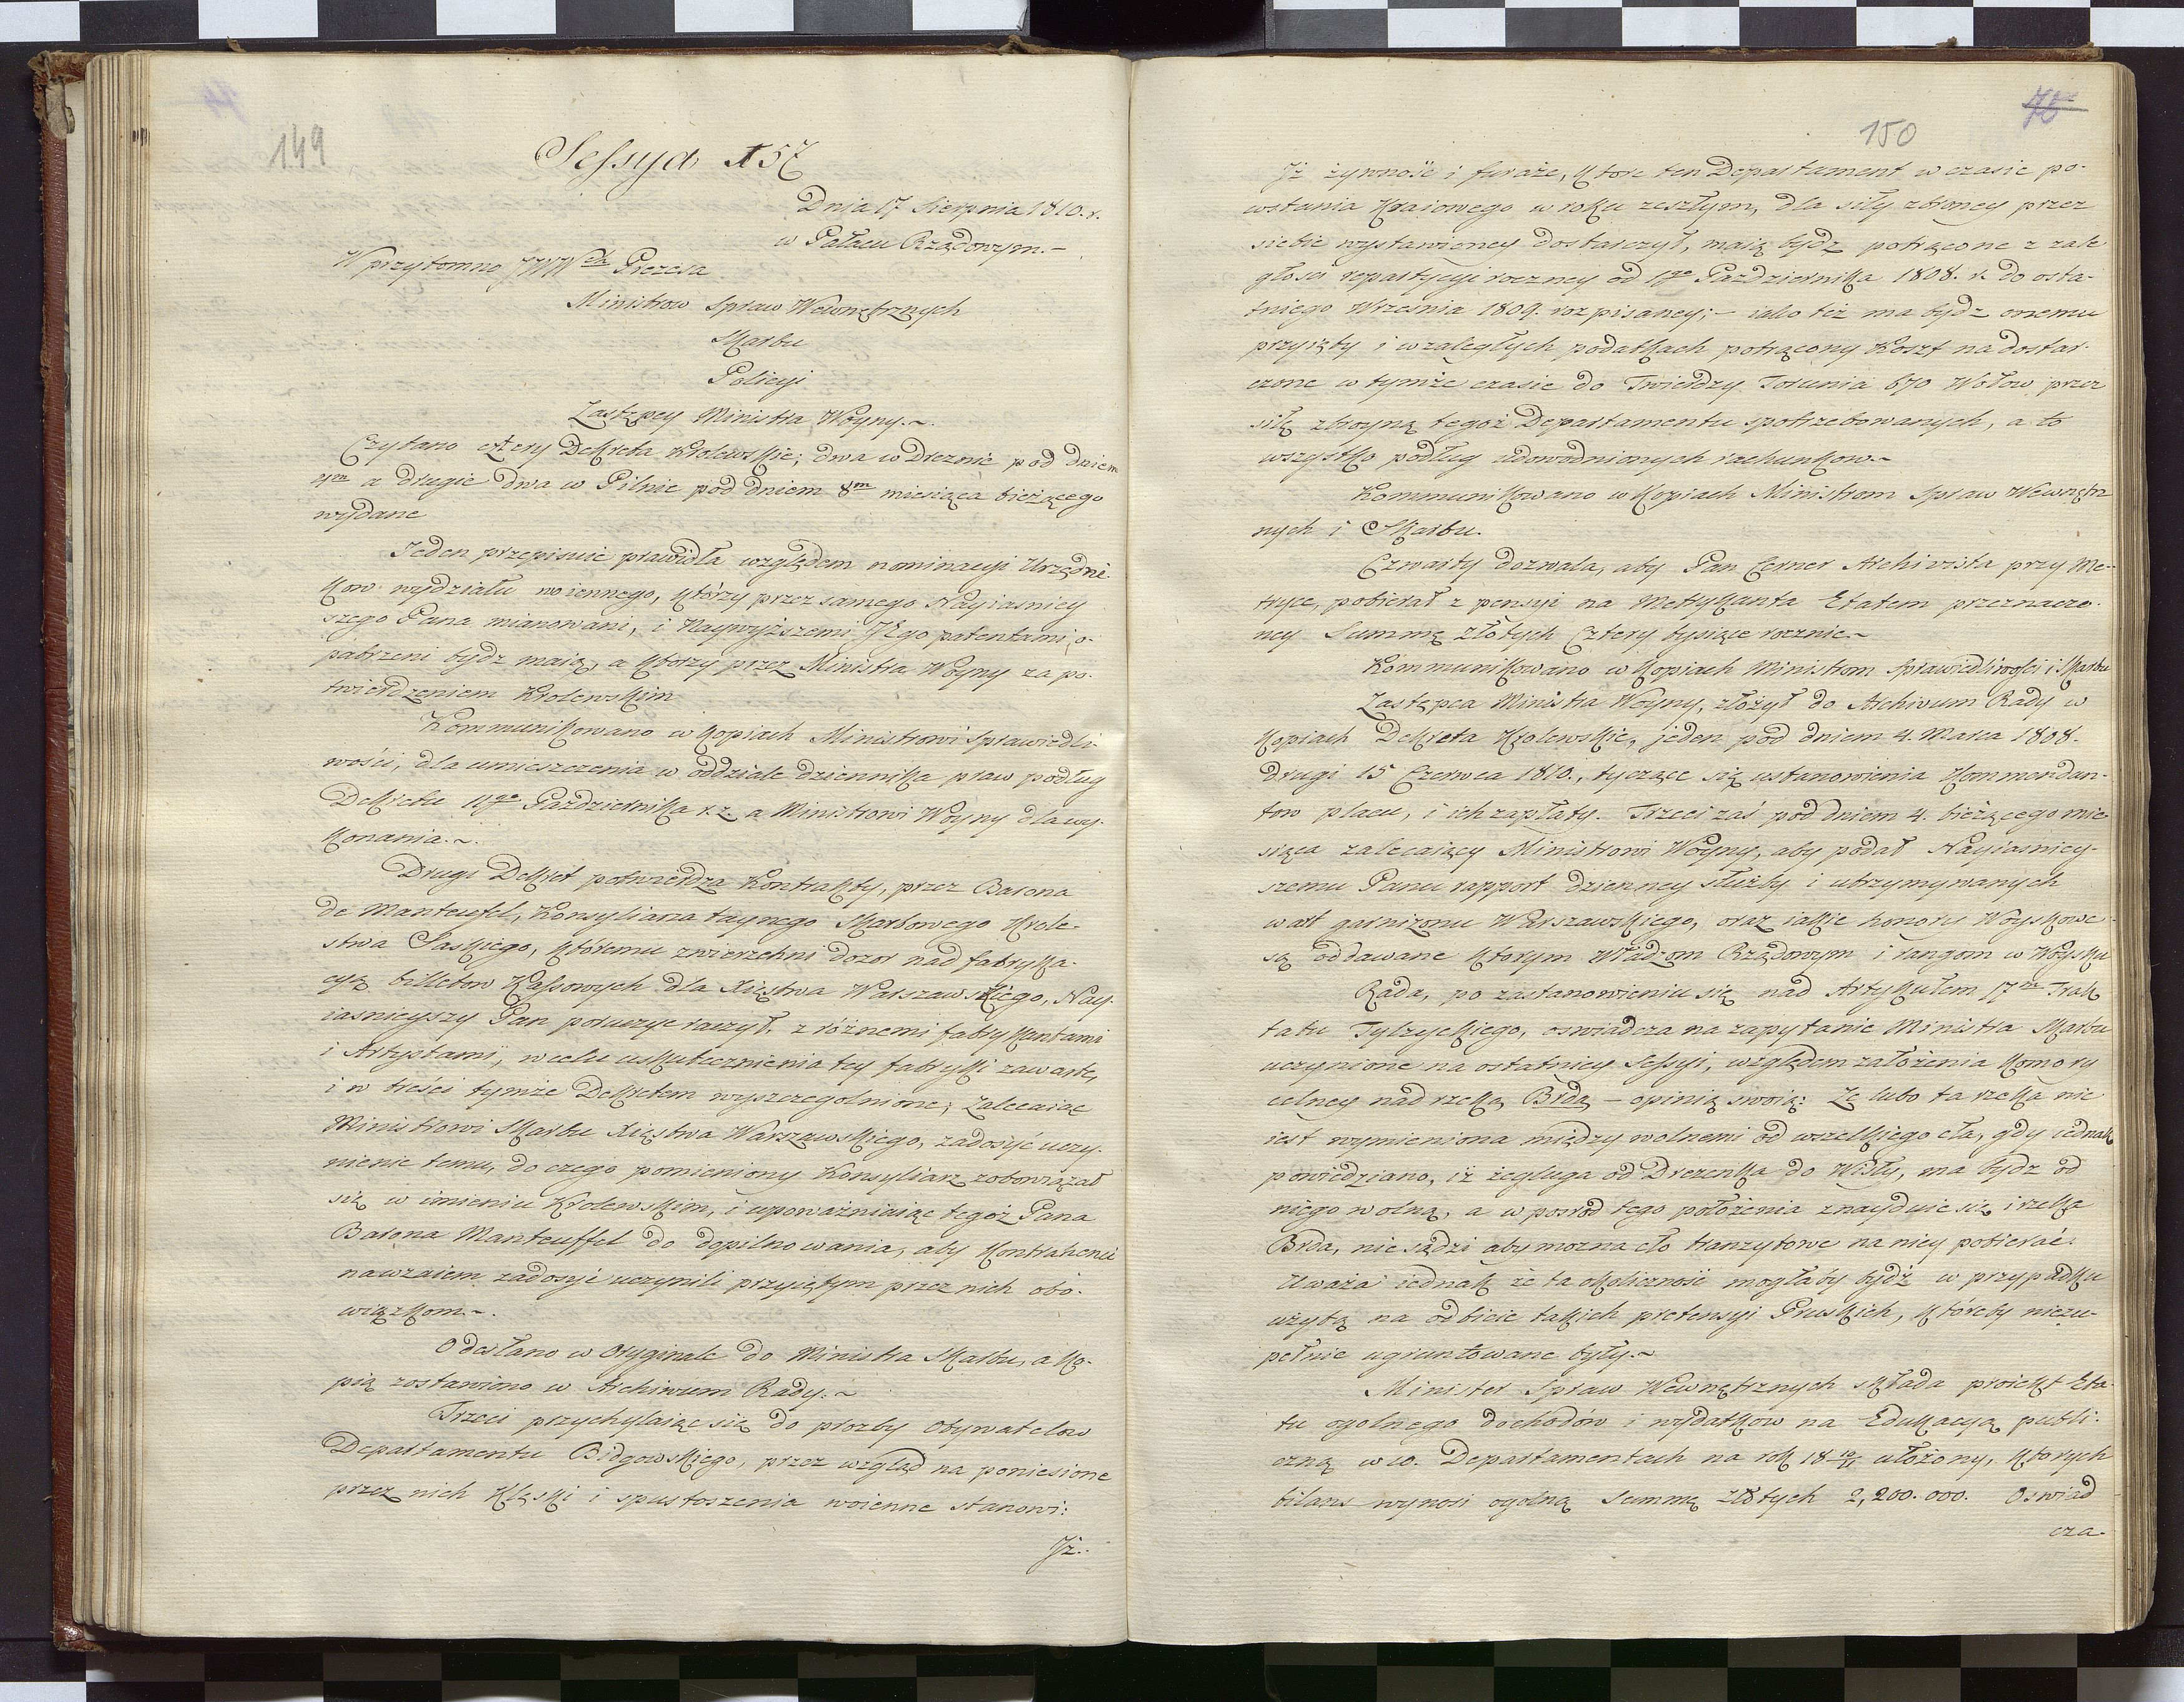 149
Sessya 57
Dnia 17 Sierpnia 1810. r.
w Pałacu Rządowym.–
W przytomno JWW Prezesa
Ministrow Spraw Wewnętrznych
Skarbu
Policyi
Zastępcy Ministra Woyny.~
Czytano cztery Dekreta Krolewskie; dwa w Dreznie pod dniem
a drugie dwa w Pilnie pod dniem 8m miesiąca bieżącego
wydane
Jeden przepisuie prawidła względem nominacyi Urzędni-
kow wydziału woiennego, którzy przez samego Nayiasniey
szego Pana mianowani, i Naywyższemi Jego patentami o-
patrzeni bydz maią, a ktorzy przez Ministra Woyny za po-
twierdzeniem Krolewskim
Kommunikowano w kopiach Ministrowi Sprawiedli-
wości, dla umieszczenia w oddziale dziennika praw podług
Dekretu 11go Października r. z. a Ministrowi Woyny dla wy-
konania.~.
Drugi Dekret potwierdza Kontrakty, przez Barona
de Manteufel, Konsyliarza taynego Skarbowego Krole-
stwa Saskiego, któremu zwierzchni dozor nad fabryka-
cyą billetow Kassowych dla Xięstwa Warszawskiego, Nay-
iasnieyszy Pan poruczyc raczył, z różnemi fabrykantami
i Artystami, w celu uskutecznienia tey fabryki zawarte,
i w treści tymże Dekretem wyszczegolnione; Zalecaiąc
Ministrowi Skarbu Xięstwa Warszawskiego, zadosyć uczy-
nienie temu, do czego pomieniony Konsyliarz zobowiązał
się w imieniu Krolewskim, i upoważniaiąc tegoż Pana
Barona Manteuffel do dopilnowania, aby Kontrahenci
nawzaiem zadosyć uczynili przyiętym przez nich obo-
wiązkom.~.
Odesłano w Oryginale do Ministra Skarbu, a ko-
pią zostawiono w Archiwum Rady.~
Trzeci przychylaiąc się do prozby Obywatelow
Departamentu Bidgowskiego, przez wzgląd na poniesione
przez nich klęski i spustoszenia woienne stanowi:
Jż..
76
150
Jż żywność i furaże, ktore ten Departament w czasie po-
wstania Kraiowego w roku zeszłym, dla siły zbroney przez
siebie wystawioney dostarczył, maią bydź potrącone z zale
głości repartycyi roczney od 1go Października 1808. r. do osta-
tniego Września 1809. rozpisaney;– iako też ma bydz onemu
przyięty i w zaległych podatkach potrącony Koszt na dostar-
czone w tymże czasie do Twierdzy Torunia 670 Wołow przez
siłę zbroyną tegoż Departamentu spotrzebowanych, a to
wszystko podług udowodnionych rachunkow.~
Kommunikowano w kopiach Ministrom Spraw Wewnętrz
nych i Skarbu.
Czwarty dozwala, aby Pan Cerner Archivista przy Me-
tryce, pobierał z pensyi na Metrykanta Etatem przeznaczo-
ney Summę złotych Cztery tysiące rocznie.~
Kommunikowano w kopiach Ministrom Sprawiedliwości i Skarbu
Zastępca Ministra Woyny, złożył do Archivum Rady w
kopiach Dekreta Krolewskie, jeden pod dniem 4. Marca 1808.
drugi 15 Czerwca 1810., tyczące się ustanowienia Kommendan-
tow placu, i ich zapłaty. Trzeci zaś pod dniem 4. bieżącego mie-
siąca zalecaiący Ministrowi Woyny, aby podał Nayiasniey-
szemu Panu rapport dzienney służby i utrzymywanych
wart garnizonu Warszawskiego, oraz iakie honory Woyskowe
są oddawane ktorym Władzom Rządowym i rangom w Woysku
Rada, po zastanowieniu się nad Artykułem 17m Trak
tatu Tylzyckiego, oswiadcza na zapytanie Ministra Skarbu
uczynione na ostatniey Sessyi, względem założenia Komory
celney nad rzeką Brdą – opinią swoią: Ze lubo ta rzeka nie
iest wymieniona między wolnemi od wszelkiego cła, gdy iednak
powiedziano, iż żegluga od Drezenka do Wisły, ma bydz od
niego wolną, a w posrod tego położenia znayduie się i rzeka
Brda, nie sądzi aby mozna cło tranzytowe na niey pobierać.
Uważa iednak że ta okoliczność mogłaby bydź w przypadku
użytą na odbicie takich pretensyi Pruskich, któreby niezu-
pełnie ugruntowane były.~
Minister Spraw Wewnętrznych składa proiekt Eta-
tu ogolnego dochodów i wydatkow na Edukacyą publi-
czną w 10. Departamentach na rok 18 10/11 ułożony, ktorych
bilans wynosi ogolną summę złotych 2,200.000. Oswiad
cza-